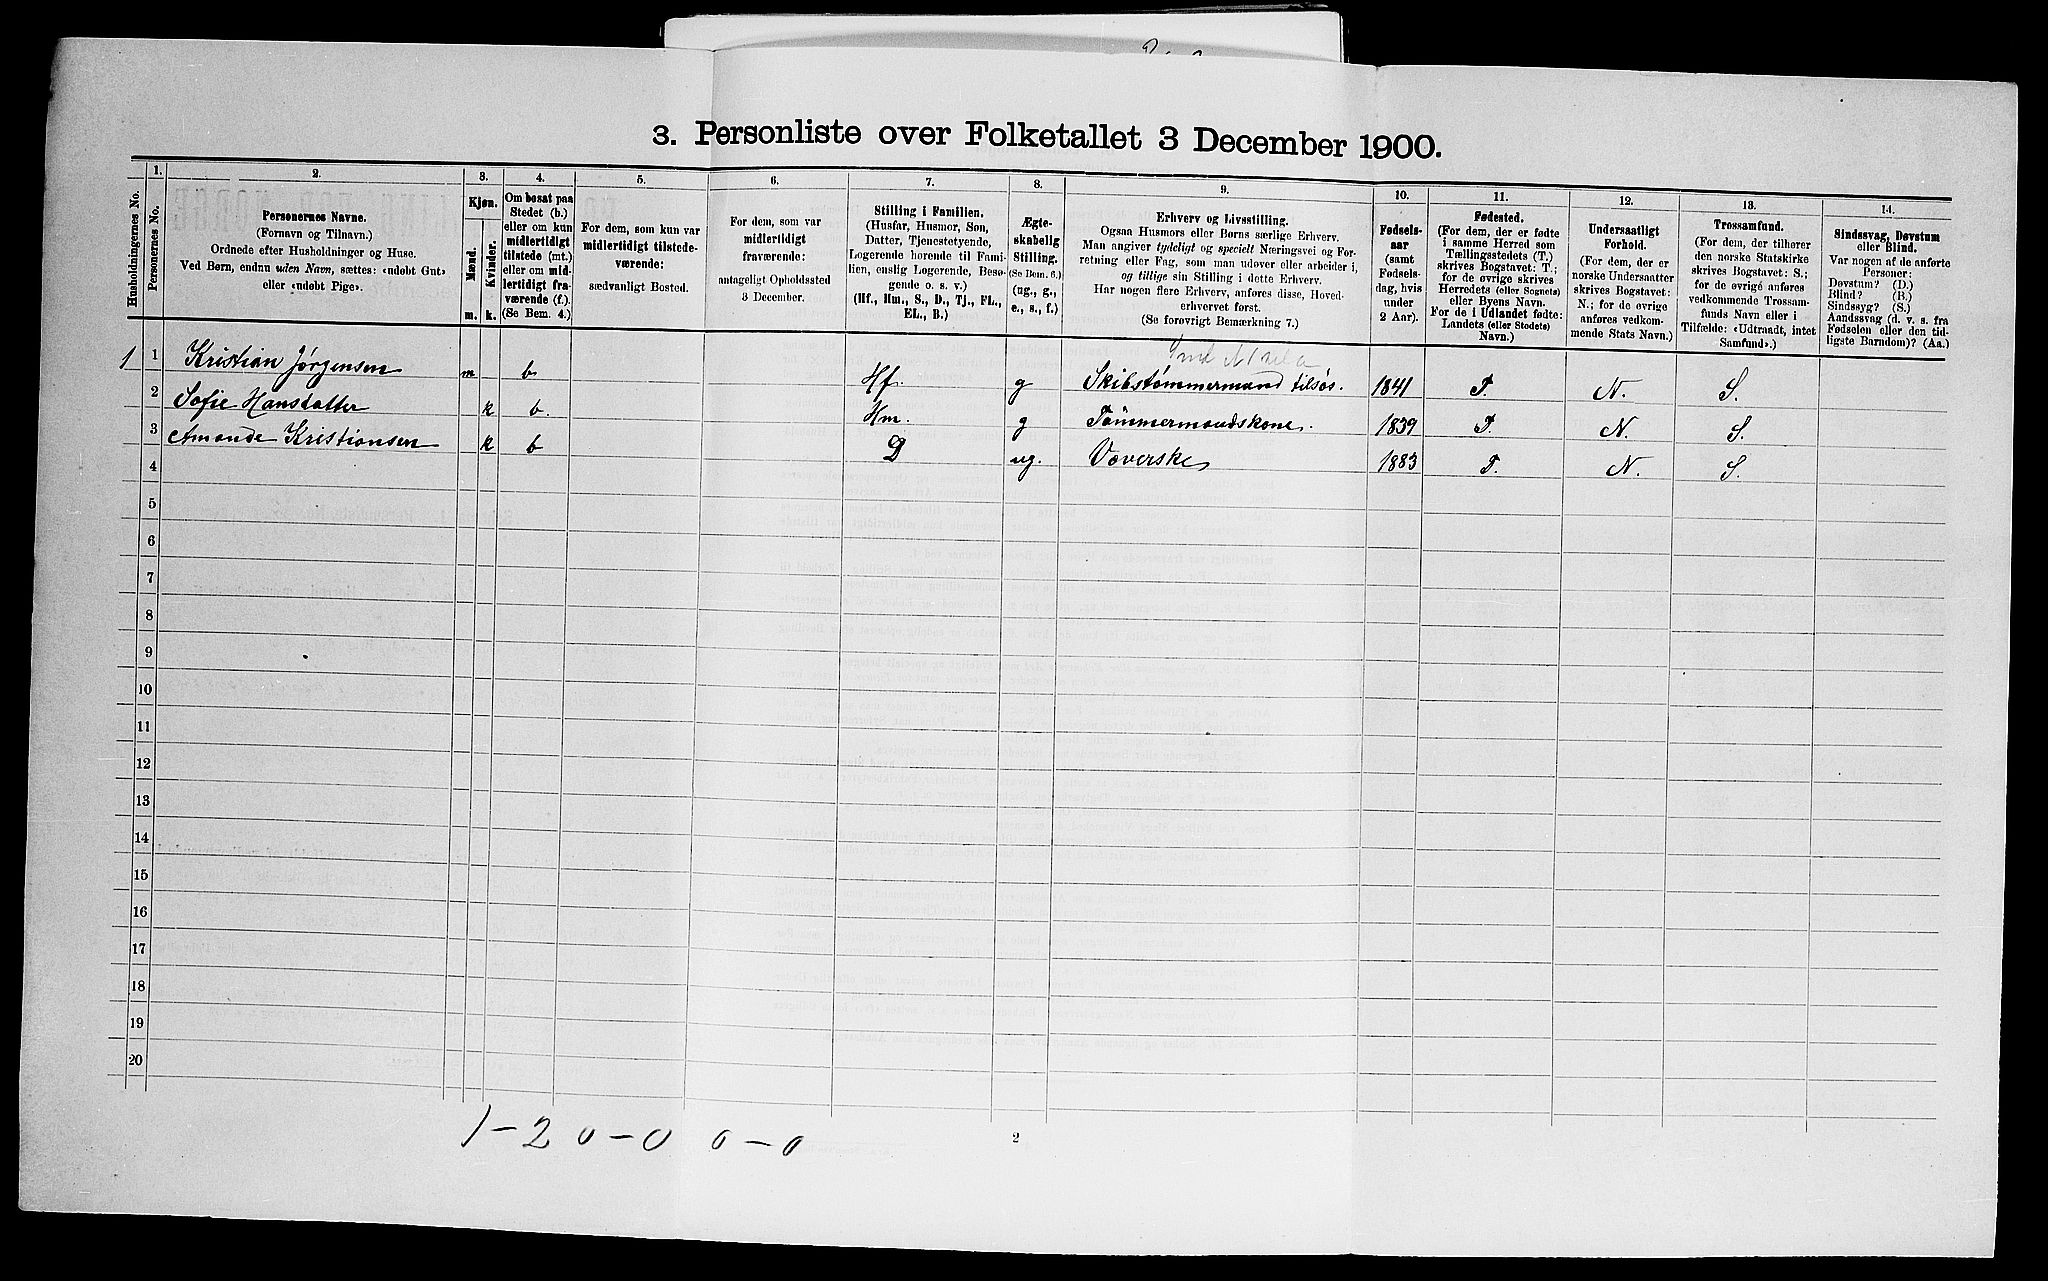 3. Personliste over Folketallet 3 December 1900.
Husholdningernes No.
1.
Personernes No.
2.
Personernes Navne.
(Fornavn og Tilnavn.)
Ordnede efter Husholdninger og Huse.
Ved Børn, endnu uden Navn, sættes: «udøbt Gut»
eller «udøbt Pige».
3.
Kjøn.
Mænd.
Kvinder.
m.
k.
4.
Om bosat paa
Stedet (b.)
eller om kun
midlertidigt
tilstede (mt.)
eller om mid-
lertidigt fra-
værende (f.).
(Se Bem. 4.)
5.
For dem, som kun var
midlertidigt tilstede-
værende:
sædvanligt Bosted.
6.
For dem, som var
midlertidigt
fraværende:
antageligt Opholdssted
3 December.
7.
Stilling i Familien.
(Husfar, Husmor, Søn,
Datter, Tjenestetyende,
Losjerende horende til Fami-
lien, enslig Losjerende, Besø-
gende o. s. v.)
(Hf., Hm., S., D., Tj., FL.,
EL., B.)
8.
Ægte-
skabelig
Stilling.
(Se Bem. 6.)
(ug., g.,
e., s., f.)
9.
Erhverv og Livsstilling.
Ogsaa Husmors eller Børns særlige Erhverv.
Man angiver tydeligt og specielt Næringsvei og For-
retning eller Fag, som man udover eller arbeider i,
og tillige sin Stilling i dette Erhverv.
Har nogen flere Erhverv, anføres disse, Hoved-
erhvervet først.
(Se forøvrigt Bemærkning 7.)
10.
Fødsels-
aar
(samt
Fødsels-
dag, hvis
under
2 Aar).
11.
Fødested.
(For dem, der er fødte
i samme Herred som
Tællingsstedets (T.)
skrives Bogstavet: T.;
for de øvrige skrives
Herredets (eller Sognets)
eller Byens Navn.
For de i Udlandet fødte:
Landets (eller Stedets)
Navn.)
12.
Undersaatligt
Forhold.
(For dem, der er
norske Undersaatter
skrives Bogstavet:
N.; for de øvrige
anføres vedkom-
mende Stats Navn.)
13.
Trossamfund.
(For dem, der tilhører
den norske Statskirke
skrives Bogstavet: S.;
for de øvrige anføres
vedkommende Trossam-
funds Navn eller i
Tilfælde: «Udtraadt, intet
Samfund».)
14.
Sindssvag, Døvstum
eller Blind.
Var nogen af de anførte
Personer:
Døvstum? (D.)
Blind? (B.)
Sindssyg? (S.)
Aandssvag (d. v. s. fra
Fødselen eller den tid-
ligste Barndom)? (Aa.)
1 1 Kristian Jørgensen m b Hf. g Skibstømmermand tilsøs. 1841 T. N. S.
2 Sofie Hansdatter k b. Hm. g Tømmermandskone. 1839 T. N. S.
3 Amande Kristiansen k b D ug. Væverske 1883 T. N. S.
4
5
6
7
8
9
10
11
12
13
14
15
16
17
18
19
20
1-2 0-0 0-0
2